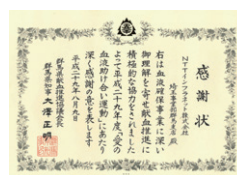 感謝状
NTTインフラネット株式会社
埼玉事業部群馬支店 殿
右は血液確保事業に深い
御理解を寄せ献血推進に
積極的な協力をされました
よって平成二十九年度「愛の
血液助け合い運動」にあたり
深く感謝の意を表します
平成二十九年八月九日
群馬県献血推進協議会長
群馬県知事 大澤正明